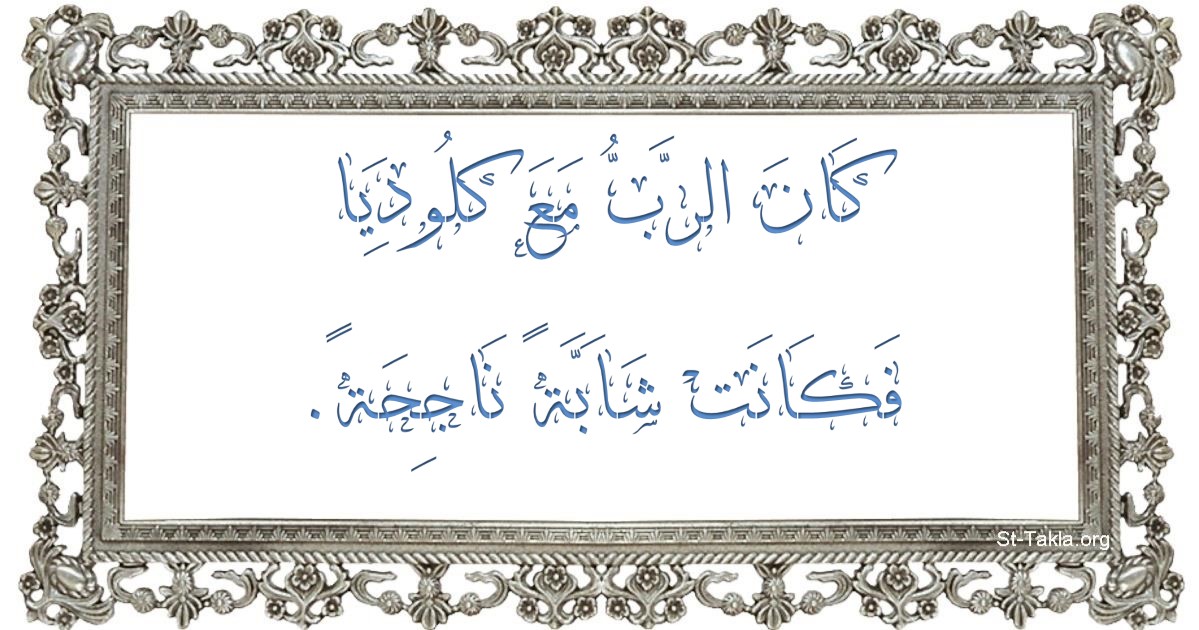 كَانَ الرَّبُّ مَعَ كلُودِيَا
فَكَانَت شَابَّةً نَاجِحَةً.
St-Takla.org